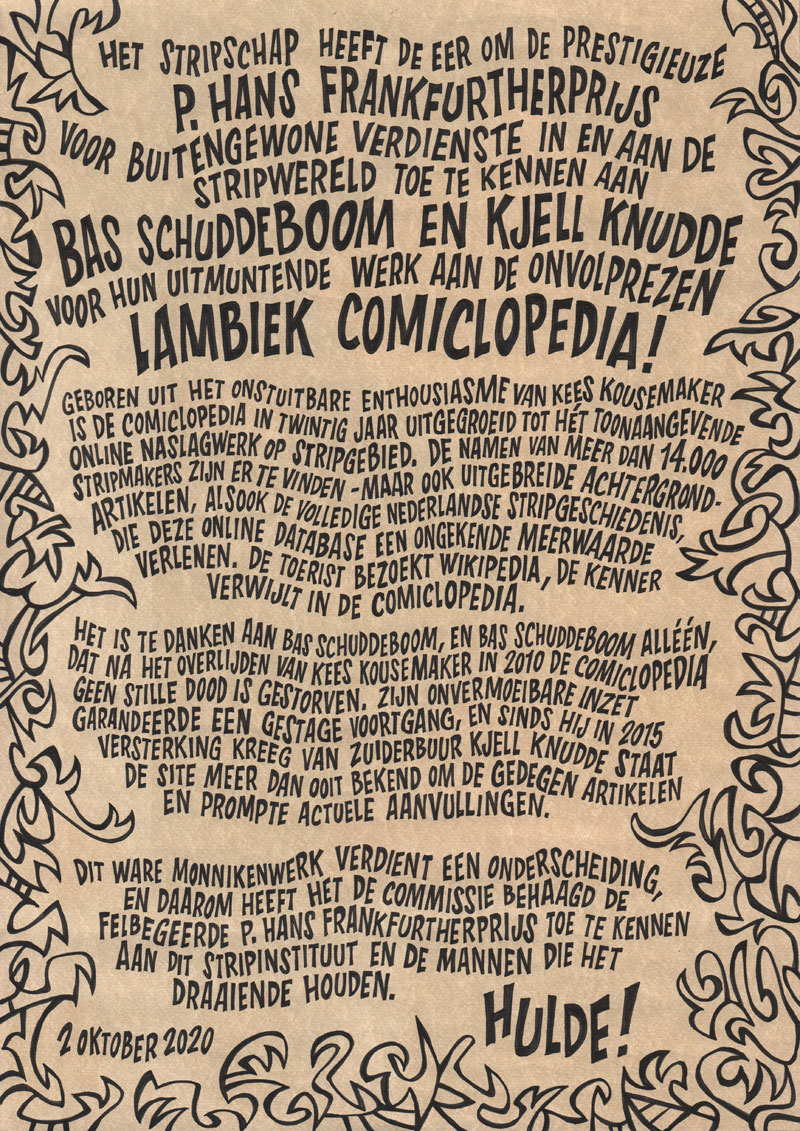 HET STRIPSCHAP HEEFT DE EER OM DE PRESTIGIEUZE
P. HANS FRANKFURTHERPRIJS
VOOR BUITENGEWONE VERDIENSTE IN EN AAN DE
STRIPWERELD TOE TE KENNEN AAN
BAS SCHUDDEBOOM EN KJELL KNUDDE
VOOR HUN UITMUNTENDE WERK AAN DE ONVOLPREZEN
LAMBIEK COMICLOPEDIA!
GEBOREN UIT HET ONSTUITBARE ENTHOUSIASME VAN KEES KOUSEMAKER
IS DE COMICLOPEDIA IN TWINTIG JAAR UITGEGROEID TOT HÉT TOONAANGEVENDE
ONLINE NASLAGWERK OP STRIPGEBIED. DE NAMEN VAN MEER DAN 14.000
STRIPMAKERS ZIJN ER TE VINDEN - MAAR OOK UITGEBREIDE ACHTERGROND-
ARTIKELEN, ALSOOK DE VOLLEDIGE NEDERLANDSE STRIPGESCHIEDENIS,
DIE DEZE ONLINE DATABASE EEN ONGEKENDE MEERWAARDE
VERLENEN. DE TOERIST BEZOEKT WIKIPEDIA, DE KENNER
VERWIJLT IN DE COMICLOPEDIA.
HET IS TE DANKEN AAN BAS SCHUDDEBOOM, EN BAS SCHUDDEBOOM ALLÉÉN,
DAT NA HET OVERLIJDEN VAN KEES KOUSEMAKER IN 2010 DE COMICLOPEDIA
GEEN STILLE DOOD IS GESTORVEN. ZIJN ONVERMOEIBARE INZET
GARANDEERDE EEN GESTAGE VOORTGANG, EN SINDS HIJ IN 2015
VERSTERKING KREEG VAN ZUIDERBUUR KJELL KNUDDE STAAT
DE SITE MEER DAN OOIT BEKEND OM DE GEDEGEN ARTIKELEN
EN PROMPTE ACTUELE AANVULLINGEN.
DIT WARE MONNIKENWERK VERDIENT EEN ONDERSCHEIDING,
EN DAAROM HEEFT HET DE COMMISSIE BEHAAGD DE
FELBEGEERDE P. HANS FRANKFURTHERPRIJS TOE TE KENNEN
AAN DIT STRIPINSTITUUT EN DE MANNEN DIE HET
DRAAIENDE HOUDEN.
HULDE!
2 OKTOBER 2020